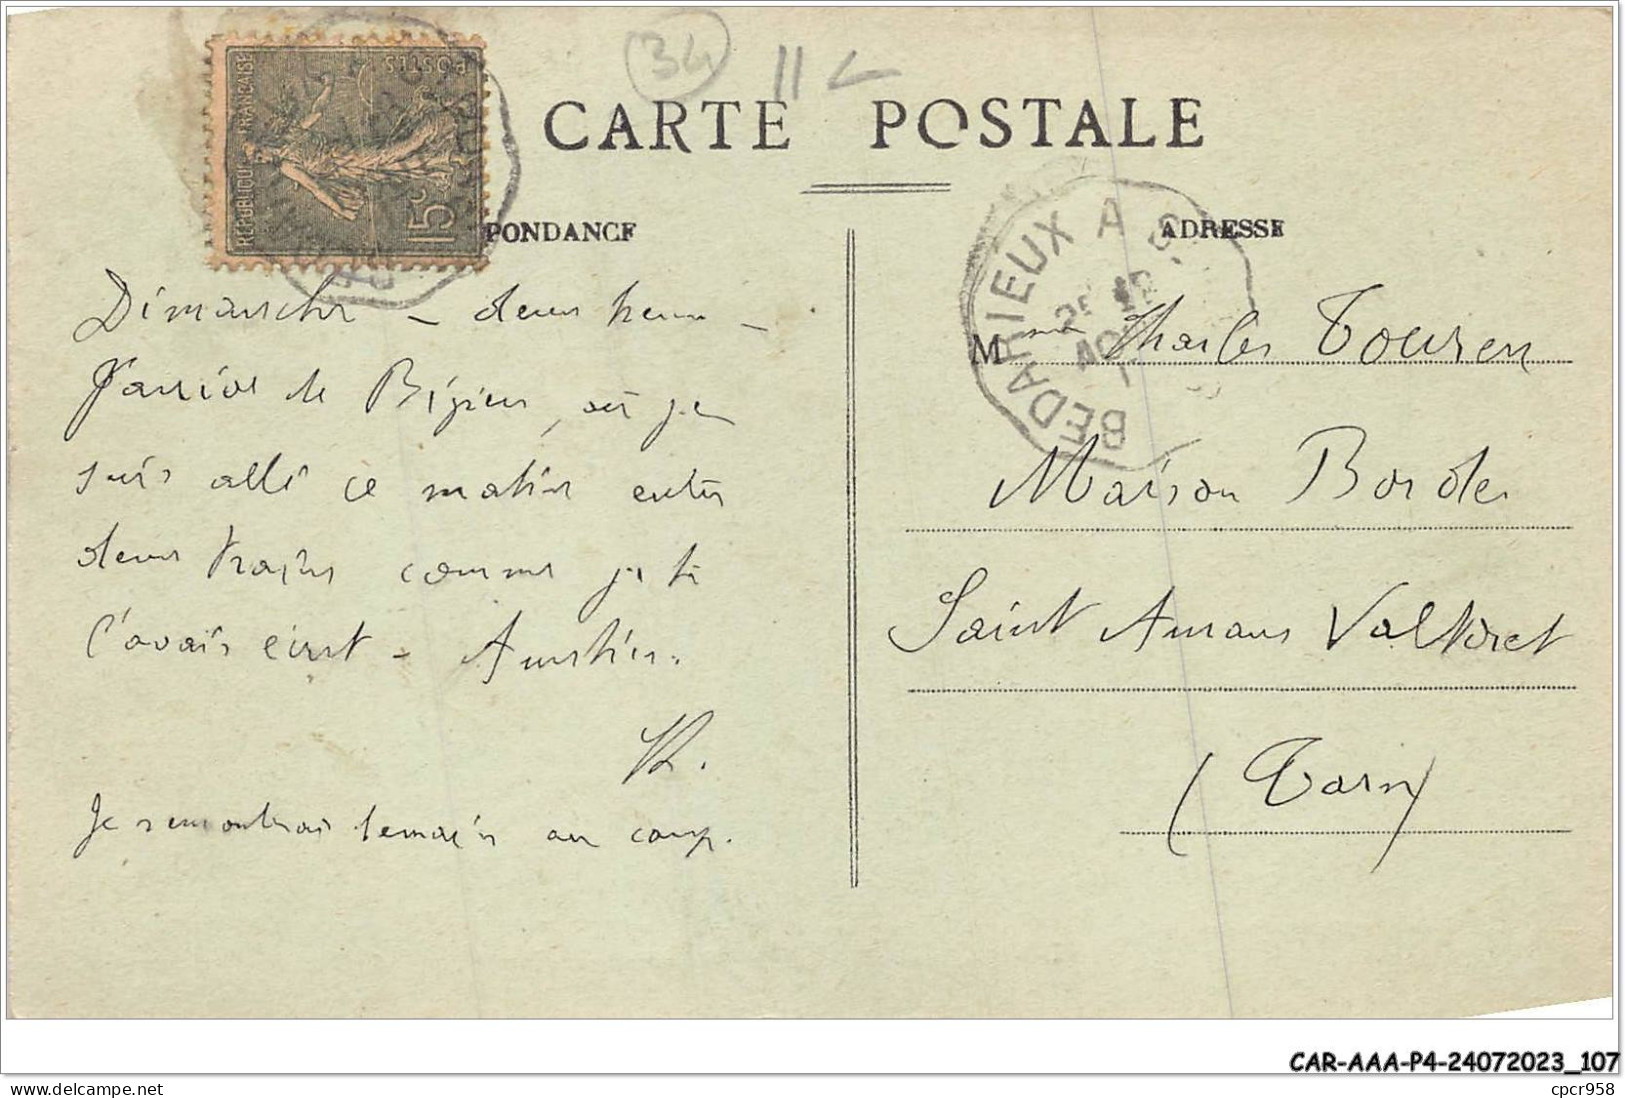 34
CARTE POSTALE
POSTES
RÉPUBLIQUE FRANÇAISE
15c
PONDANCE
ADRESSE
BEDARIEUX A
Dimanche - deux heures -
J'arrive de Béziers, où je
suis allé ce matin entre
deux trains comme je te
l'avais écrit -
Je remonterai demain au camp.
Mme Charles Touren
Maison Bordes
Saint Amans Valtoret
(Tarn)
CAR-AAA-P4-24072023_107
delcampe.net
cpcr958